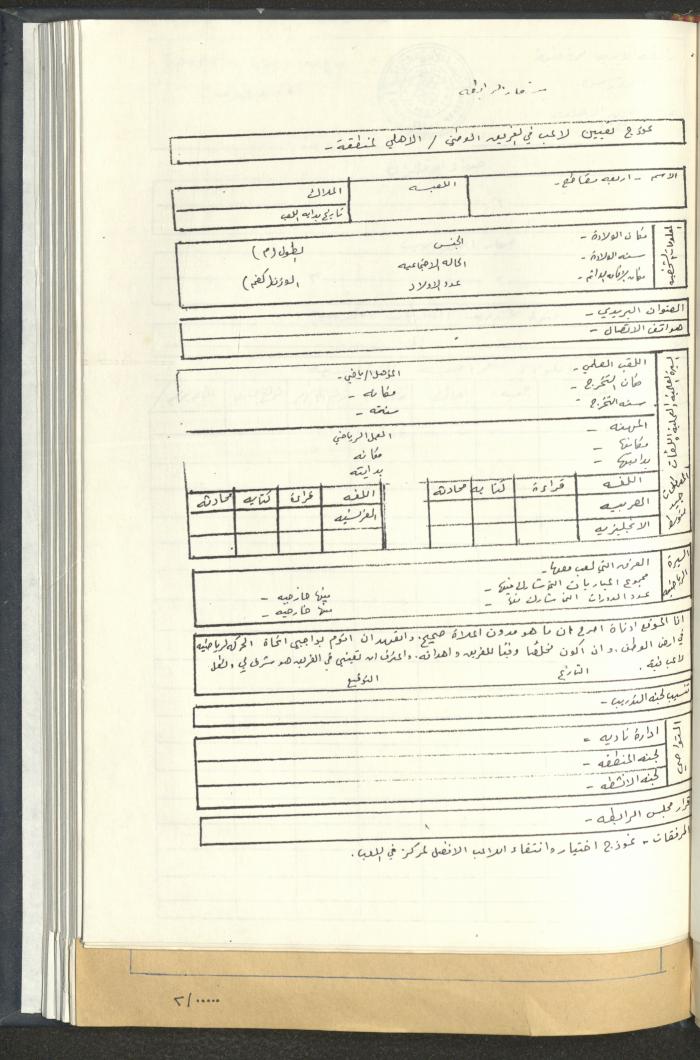 نموذج تعيين لاعب في الفريق الوطني / الاهلي لمنطقة -
الاسم - اربعة مقاطع -
اللعبه
الملاك
تاريخ بدايه اللعب
المعلومات الشخصيه
مكان الولادة -
الجنس
الطول (م)
سنه الولادة -
الحاله الاجتماعيه
مكان الاقامه الدائم -
عدد الاولاد
الوزن (كغم)
العنوان البريدي -
هواتف الاتصال -
اللقب العلمي -
المؤهل الرياضي -
مكان التخرج -
مكانه -
سنه التخرج -
سنته -
المهنه -
العمل الرياضي
مكانها -
مكانه
بدايتها -
بدايته
اللغه قراءة كتابه محادثه
اللغه قراءة كتابه محادثه
العربيه
الفرنسيه
الانجليزيه
السيرة الرياضيه
الفرق التي لعب معها -
مجموع المباريات التي شارك فيها -
منها خارجيه -
عدد الدورات التي شارك فيها -
منها خارجيه -
انا الموقع ادناة اصرح بان ما هو مدون اعلاة صحيح، واتعهد ان اقوم بواجبي اتجاة الحركه الرياضيه
في ارض الوطن، وان اكون مخلصا وفيا للفريق واهدافه، واعترف ان تعييني في الفريق هو شرف لي
التاريخ
التوقيع
تنسيب لجنه التدريب -
التواصي
ادارة ناديه -
لجنه المنطقه -
لجنه الانشطه -
قرار مجلس الرابطه -
المرفقات - نموذج اختيار وانتقاء اللاعب الافضل لمركز في اللعب.
٢/.....